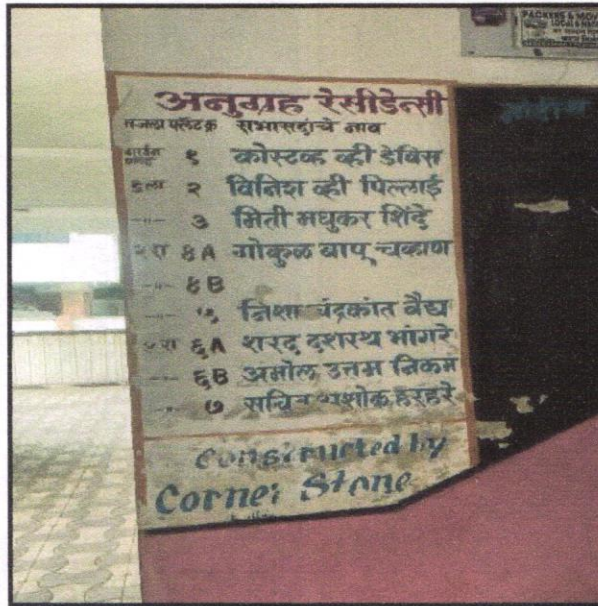 PACKERS & MOV
LOCAL &
अनुग्रह रेसीडेन्सी
मजला फ्लॅट क्र सभासदांचे नाव
गार्डन १ कोस्टव्ह व्ही डेविस
१ला २ विनिश व्ही पिल्लाई
-॥- ३ मिती मधुकर शिंदे
२रा ४A गोकुळ बापू चव्हाण
-॥- ४B
-॥- ५ निशा चंद्रकांत वैद्य
३रा ६A शरद दशरथ भांगरे
-॥- ६B अमोल उत्तम निकम
-॥- ७ सचिन अशोक हरहरे
Constructed by
Corner Stone